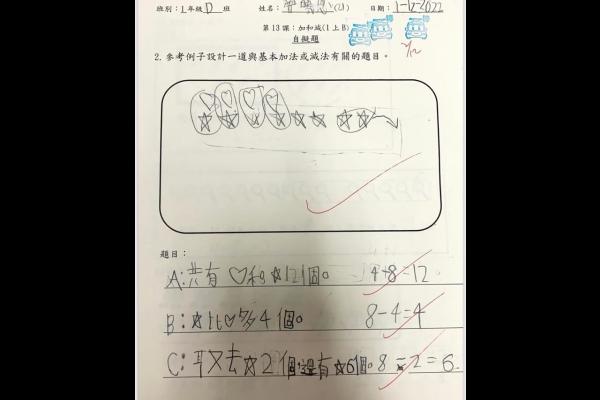 班別：1年級D班 姓名： (21) 日期：1-12-2022
第13課：加和減(1上B)
自擬題
2.參考例子設計一道與基本加法或減法有關的題目。
題目：
A:共有♡和☆12個。 4+8=12
B:☆比♡多4個。 8-4=4
C:取去☆2個,還有☆6個。8-2=6.